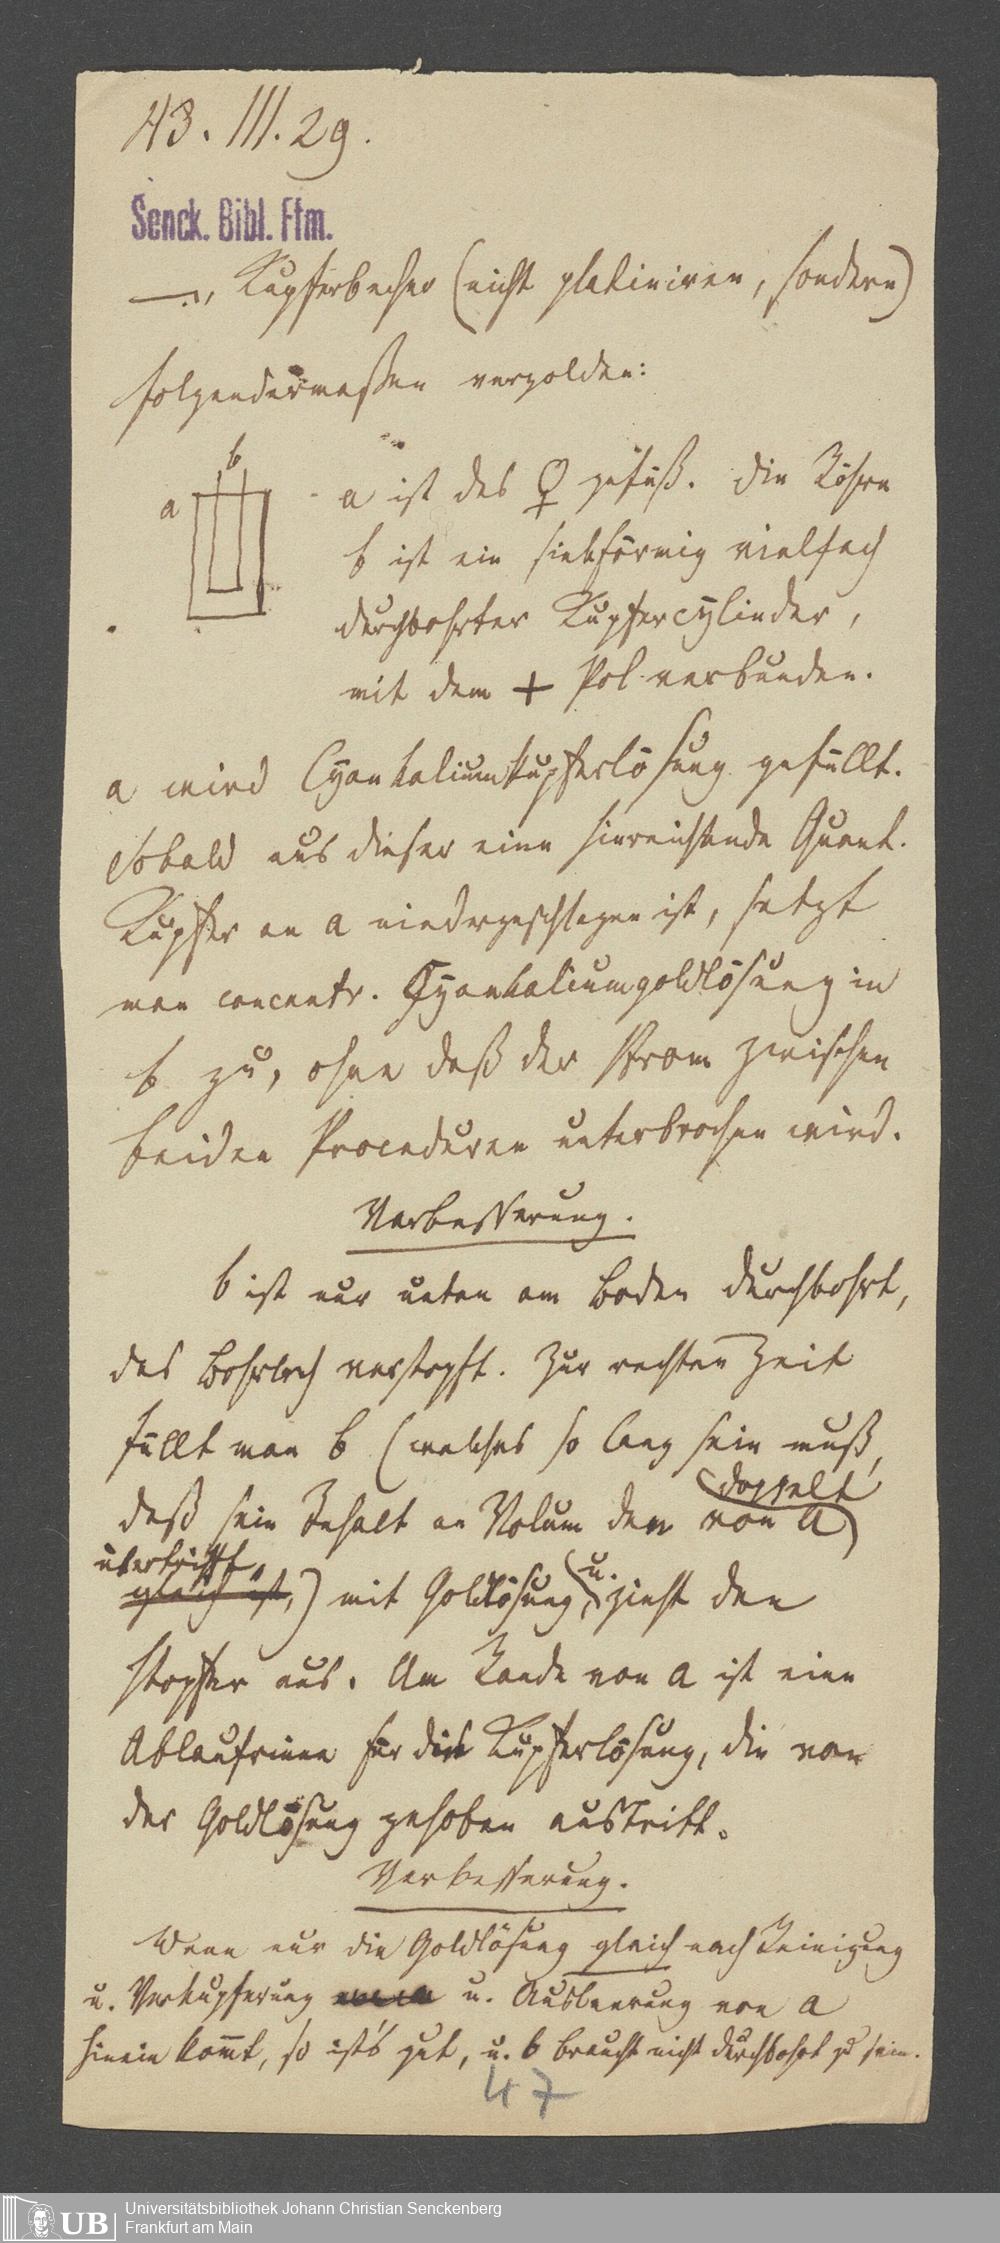 43. III. 29.
Senck. Bibl. Ffm.
—, Kupferbecher (nicht platiniren, sondern)
folgendermaßen vergolden:
b
a
a ist das ♀ gefäß. Die Röhre
b ist ein siebförmig vielfach
durchbohrter Kupfercylinder,
mit dem + Pol verbunden.
a wird Cyankaliumkupferlösung gefüllt.
Sobald aus dieser eine hinreichende Quant.
Kupfer an a niedergeschlagen ist, setzt
man concentr. Cyankaliumgoldlösung in
b zu, ohne daß der Strom zwischen
beiden Proceduren unterbrochen wird.
Verbesserung.
b ist nur unten am Boden durchbohrt,
das Bohrloch verstopft. Zur rechten Zeit
füllt man b (welches so lang sein muß,
doppelt
daß sein Gehalt an Volum den von a)
übertrifft,
gleich ist,) mit Goldlösung, u. zieht den
Stopfer aus. Am Rande von a ist eine
Ablaufrinne für die Kupferlösung, die von
der Goldlösung gehoben austritt.
Verbesserung.
Wenn nur die Goldlösung gleich nach Reinigung
u. Verkupferung u. Ausleerung von a
hinein kom̄t, so ist's gut, u. b braucht nicht durchbohrt zu sein.
47
UB
Universitätsbibliothek Johann Christian Senckenberg
Frankfurt am Main